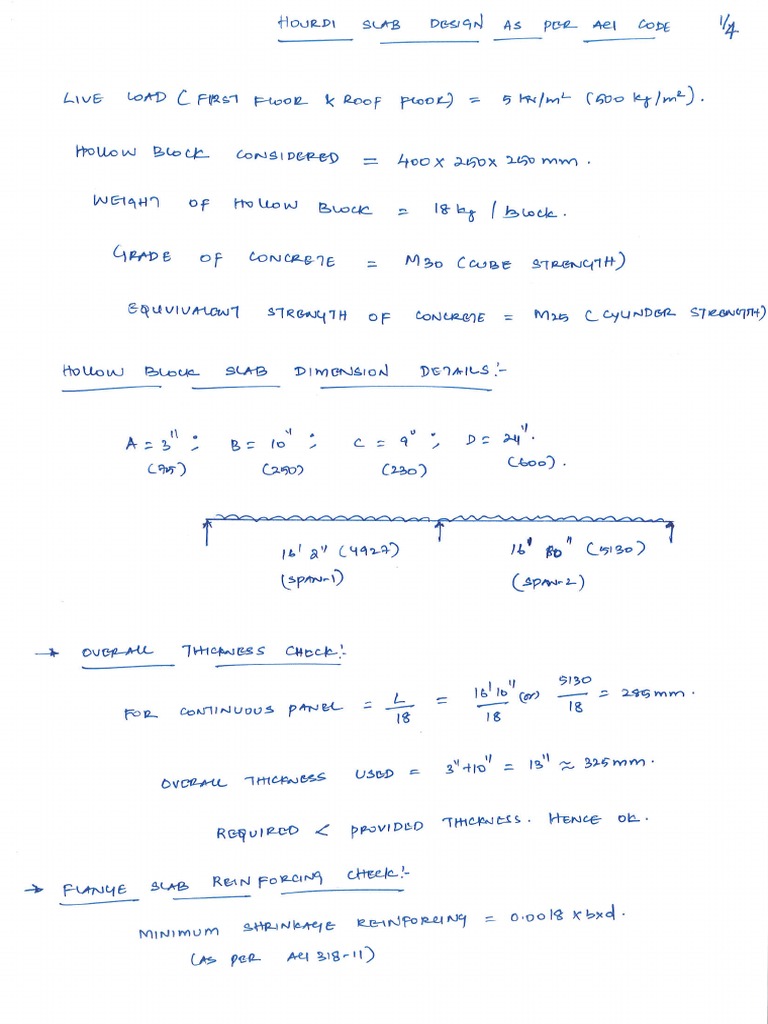 HOURDI SLAB DESIGN AS PER ACI CODE 1/4
LIVE LOAD (FIRST FLOOR & ROOF FLOOR) = 5 kN/m² (500 kg/m²).
HOLLOW BLOCK CONSIDERED = 400 x 250 x 250 mm.
WEIGHT OF HOLLOW BLOCK = 18 kg / Block.
GRADE OF CONCRETE = M30 (CUBE STRENGTH)
EQUVIVALENT STRENGTH OF CONCRETE = M25 (CYLINDER STRENGTH)
HOLLOW BLOCK SLAB DIMENSION DETAILS:-
A = 3" ; B = 10" ; C = 9" ; D = 24".
(75) (250) (230) (600).
16' 2" (4927) 16' 10" (5130)
(SPAN-1) (SPAN-2)
→ OVERALL THICKNESS CHECK:-
FOR CONTINUOUS PANEL = L/18 = 16'10"/18 (or) 5130/18 = 285 mm.
OVERALL THICKNESS USED = 3"+10" = 13" ≈ 325 mm.
REQUIRED < PROVIDED THICKNESS. HENCE OK.
→ FLANGE SLAB REINFORCING CHECK:-
MINIMUM SHRINKAGE REINFORCING = 0.0018 x b x d.
(AS PER ACI 318-11)